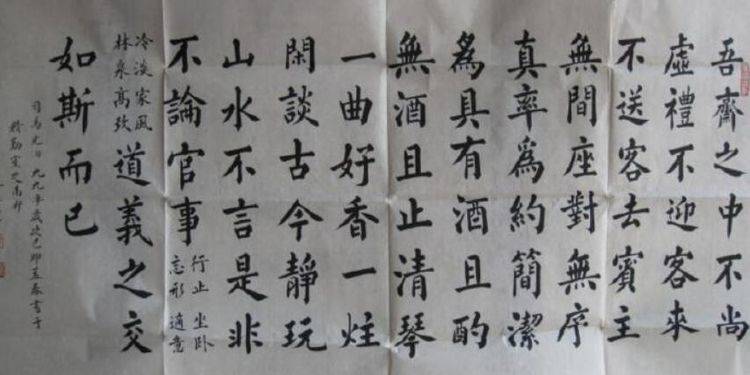 吾齋之中不尚
虛禮不迎客來
不送客去賓主
無間座對無序
真率為約簡潔
為具有酒且酌
無酒且止清琴
一曲好香一炷
閑談古今靜玩
山水不言是非
不論官事
行止坐卧
忘形適意
冷淡家風
林泉高致
道義之交
如斯而已
司馬光 九九年歲次己卯孟春書于